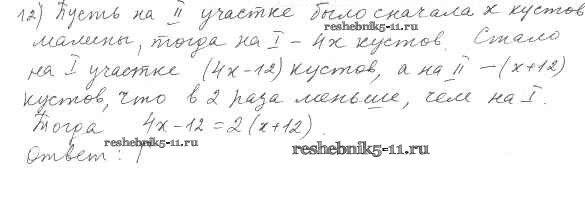 12) Пусть на II участке было сначала x кустов
reshebnik5-11.ru
малины, тогда на I - 4x кустов. Стало
на I участке (4x-12) кустов, а на II - (x+12)
кустов, что в 2 раза меньше, чем на I.
Тогда 4x-12=2(x+12).
reshebnik5-11.ru
reshebnik5-11.ru
Ответ: Г